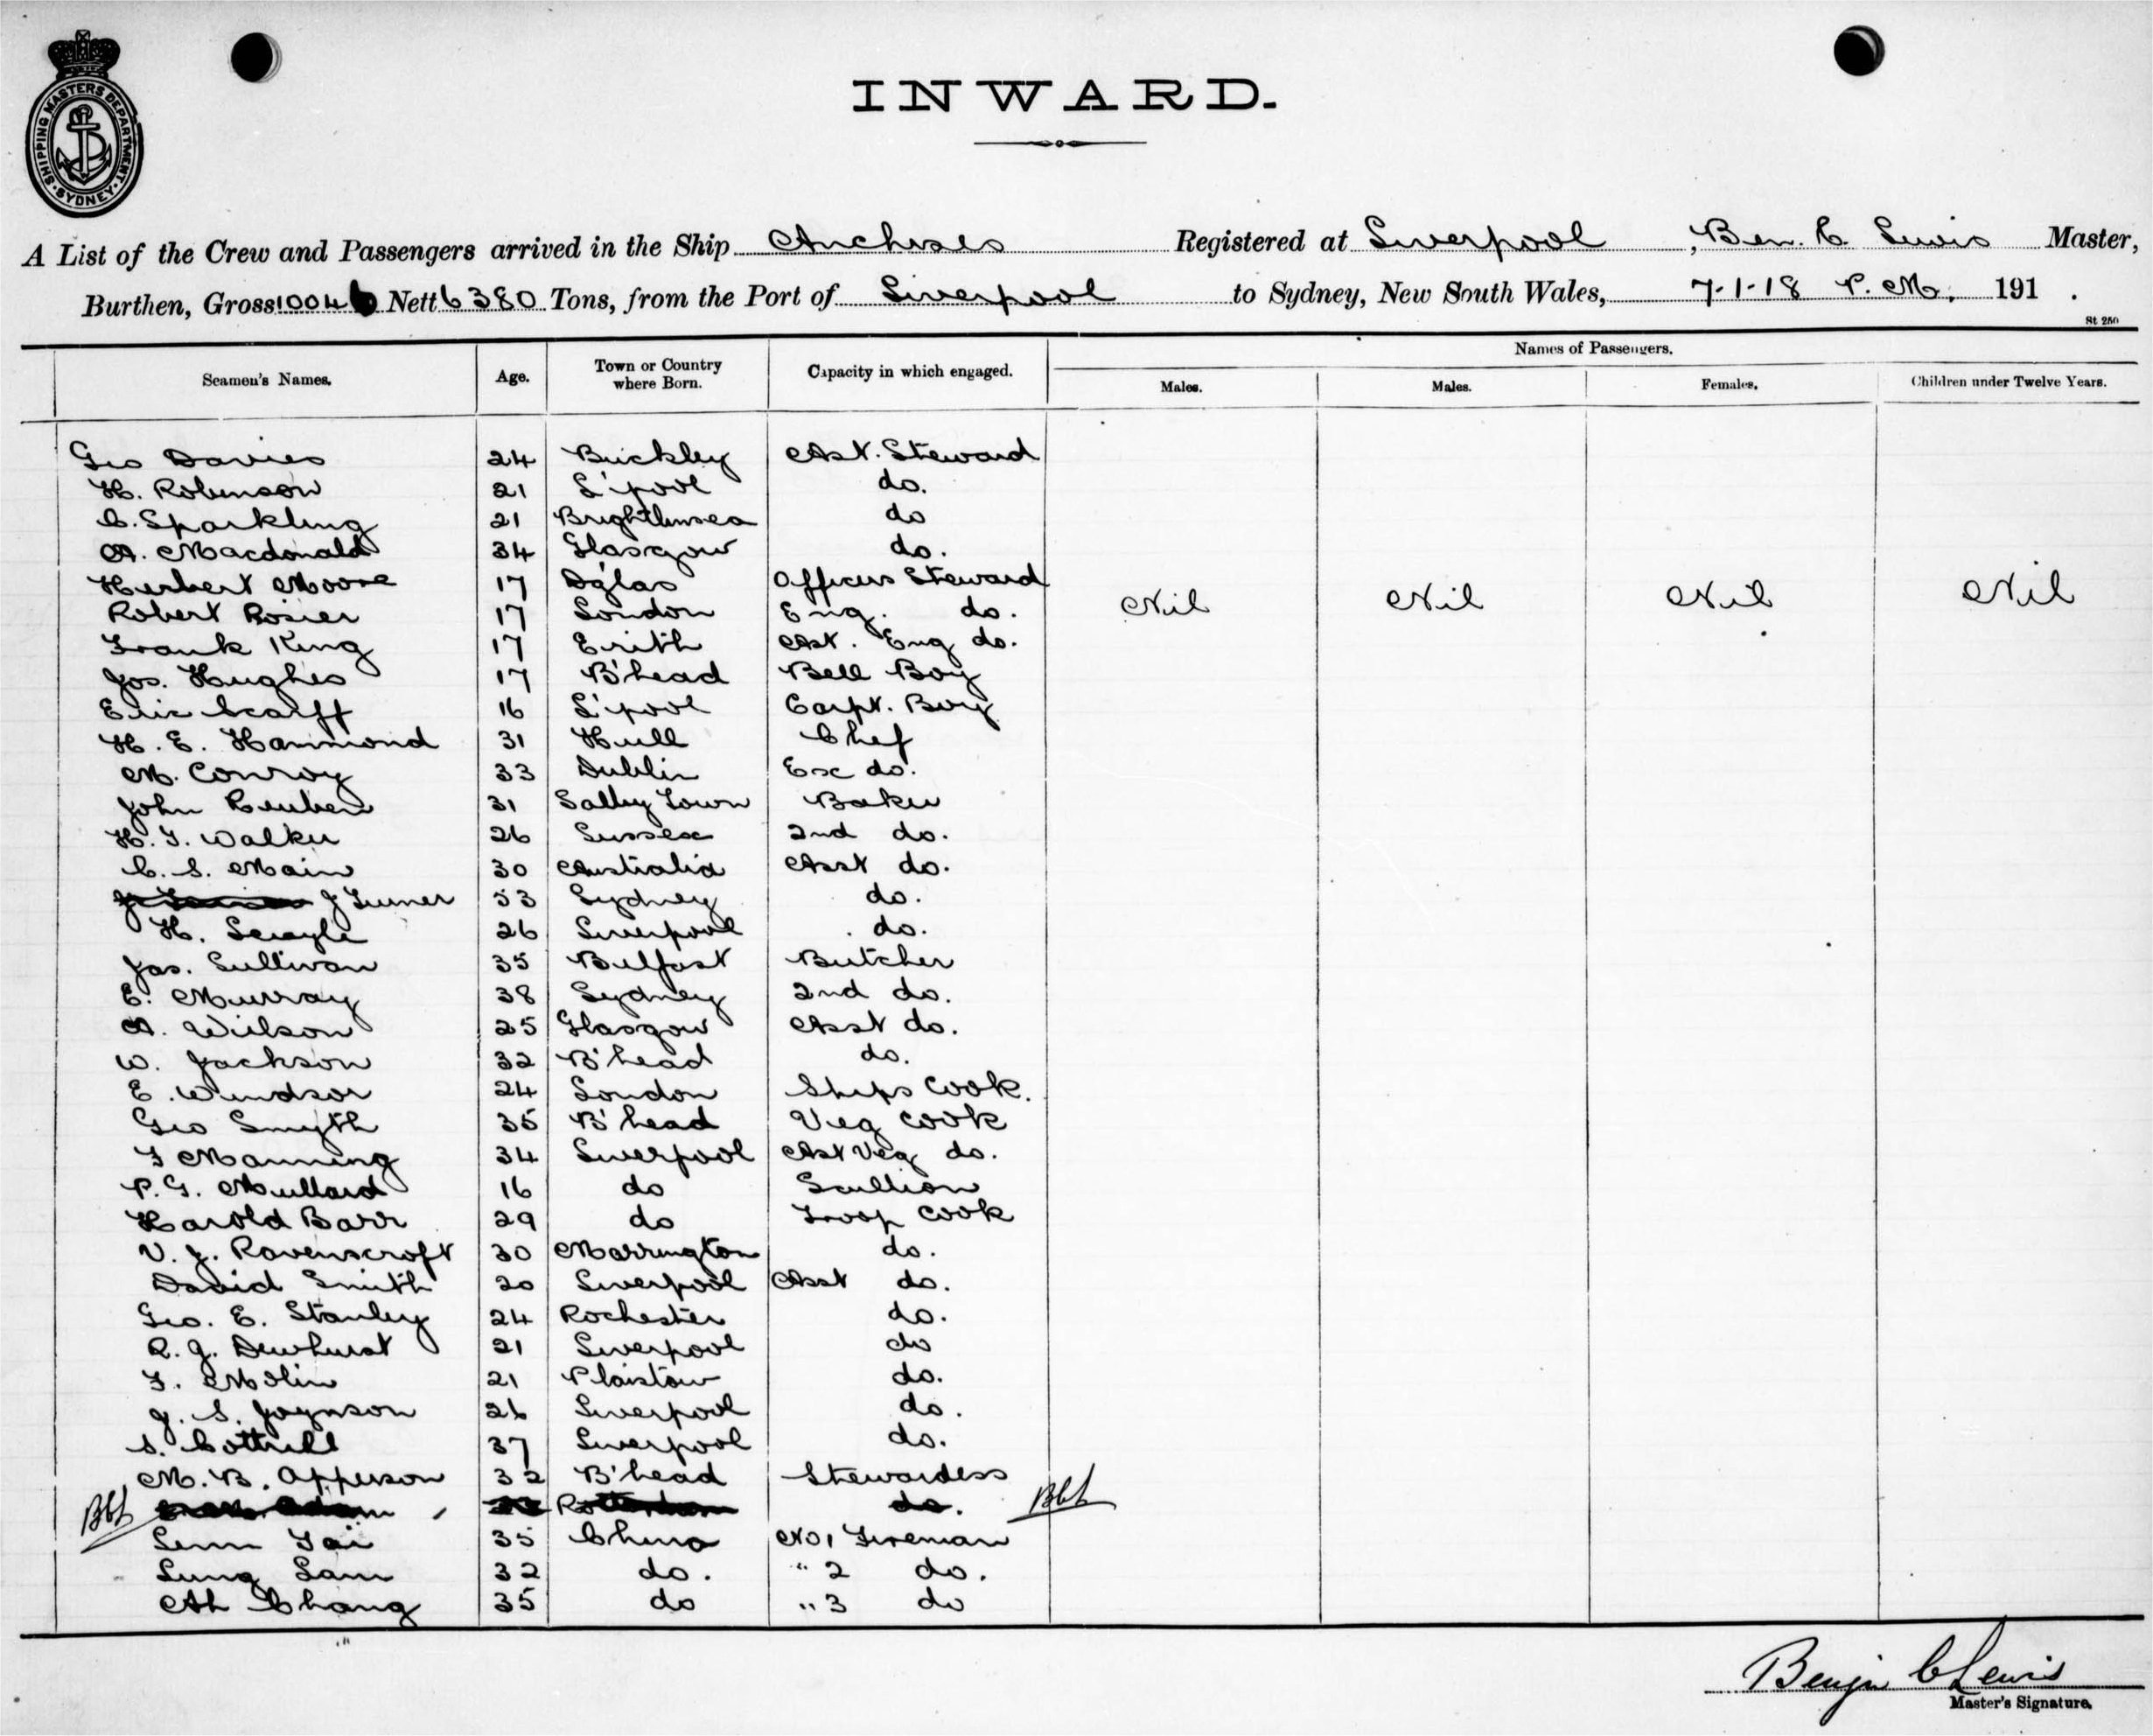 SHIPPING MASTERS DEPARTMENT. SYDNEY.
INWARD.
A List of the Crew and Passengers arrived in the Ship Anchises Registered at Liverpool, Ben. C. Lewis Master,
Burthen, Gross 10046 Nett 6380 Tons, from the Port of Liverpool to Sydney, New South Wales, 7-1-18 P.M. 191 .
St 250
Seamen's Names. Age. Town or Country where Born. Capacity in which engaged. Names of Passengers.
Males. Males. Females. Children under Twelve Years.
Geo Davies 24 Buckley Ast. Steward
H. Robinson 21 L'pool do.
C. Sparkling 21 Brightlinsea do
A. Macdonald 34 Glasgow do.
Herbert Moore 17 D'glas Officers Steward
Robert Rosier 17 London Eng. do.
Nil Nil Nil Nil
Frank King 17 Erith Ast. Eng do.
Jos. Hughes 17 B'head Bell Boy
Eric Scarff 16 L'pool Capt. Boy
H. E. Hammond 31 Hull Chef
M. Conroy 33 Dublin Ex do.
John Reuben 31 Town Baker
H. J. Walker 26 Sussex 2nd do.
C. S. Main 30 Australia Asst do.
J Turner 53 Sydney do.
H. 26 Liverpool do.
Jas. Sullivan 35 Belfast Butcher
E. Murray 38 Sydney 2nd do.
A. Wilson 25 Glasgow Asst do.
W. Jackson 32 B'head do.
E. Windsor 24 London Ships Cook.
Geo Smyth 35 B'head Veg Cook
F Manning 34 Liverpool Ast Veg do.
P. G. Mullard 16 do Scullion
Harold Barr 29 do Troop Cook
V. J. Ravenscroft 30 Marrington do.
David Smith 20 Liverpool Asst do.
Geo. E. Stanley 24 Rochester do.
R. J. Dewhurst 21 Liverpool do
F. Molin 21 Plaistow do.
J. S. Joynson 26 Liverpool do.
S. Cottrell 37 Liverpool do.
M. B. Apperson 32 B'head Stewardess
BCL do. BCL
Lenn Tai 35 China No 1 Fireman
Lung Lam 32 do. " 2 do.
Ah Chang 35 do " 3 do
Benjn C Lewis
Master's Signature.